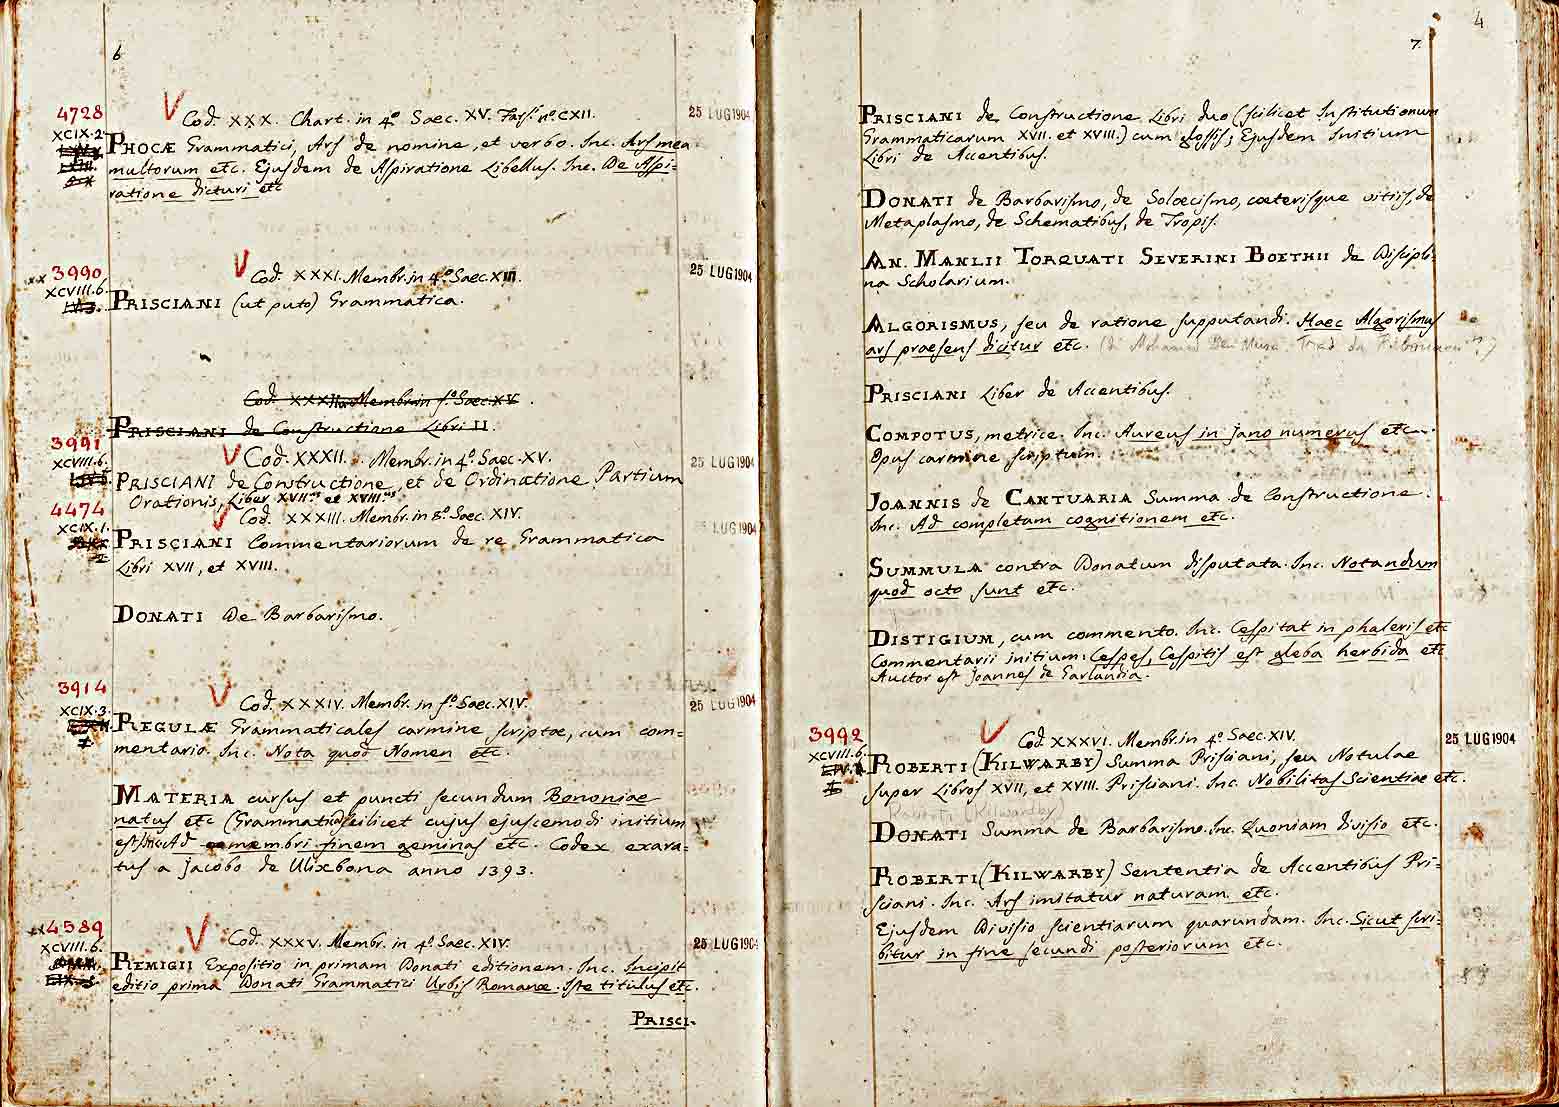 6
4728
Cod. XXX. Chart. in 4.º Saec. XV. Fasc. nº CXII.
25 LUG 1904
XCIX.2
PHOCÆ Grammatici, Ars de nomine, et verbo. Inc. Ars mea
multorum etc. Ejusdem de Aspiratione Libellus. Inc. De Aspi=
ratione dicturi etc
3990
Cod. XXXI. Membr. in 4.º Saec. XIII.
25 LUG 1904
XCVIII.6.
PRISCIANI (ut puto) Grammatica.
Cod. XXXII Membr. in f.º Saec. XV.
PRISCIANI de Constructione Libri II.
3991
Cod. XXXII. Membr. in 4.º Saec. XV.
25 LUG 1904
XCVIII.6.
PRISCIANI de Constructione, et de Ordinatione Partium
Orationis, Liber XVII.us et XVIII.us
4474
Cod. XXXIII. Membr. in 8.º Saec. XIV.
25 LUG 1904
XCIX.1.
PRISCIANI Commentariorum de re Grammatica
Libri XVII, et XVIII.
DONATI De Barbarismo.
3914
Cod. XXXIV. Membr. in f.º Saec. XIV.
25 LUG 1904
XCIX.3.
REGULÆ Grammaticales carmine scriptae, cum com=
mentario. Inc. Nota quod Nomen etc.
MATERIA cursus et puncti secundum Bononiae
natus etc (Grammatica scilicet cujus ejuscemodi initium
est) Inc. Ad membri finem geminas etc. Codex exara=
tus a Jacobo de Ulixbona anno 1393.
4589
Cod. XXXV. Membr. in 4.º Saec. XIV.
25 LUG 1904
XCVIII.6.
REMIGII Expositio in primam Donati editionem. Inc. Incipit
editio prima Donati Grammatici Urbis Romanæ. Iste titulus etc.
PRISCI.
4
7
PRISCIANI de Constructione Libri duo (scilicet Institutionum
Grammaticarum XVII. et XVIII.) cum glossis; Ejusdem Initium
Libri de Accentibus.
DONATI de Barbarismo, de Solœcismo, cœterisque vitiis, de
Metaplasmo, de Schematibus, de Tropis.
AN. MANLII TORQUATI SEVERINI BOETHII de Discipli=
na Scholarium.
ALGORISMUS, seu de ratione supputandi. Haec Algorismus
ars praesens dicitur etc. (di Mohamed Ben Musa. Trad. da
PRISCIANI Liber de Accentibus.
COMPOTUS, metrice. Inc. Aureus in jano numerus etc.
Opus carmine scriptum.
JOANNIS de CANTUARIA Summa de Constructione.
Inc. Ad completam cognitionem etc.
SUMMULA contra Donatum disputata. Inc. Notandum
quod octo sunt etc.
DISTIGIUM, cum commento. Inc. Cespitat in phaleris etc
Commentarii initium: Cespes, Cespitis est gleba herbida etc
Auctor est Joannes de Garlandia.
3992
Cod. XXXVI. Membr. in 4.º Saec. XIV.
25 LUG 1904
XCVIII.6.
ROBERTI (KILWARBY) Summa Prisciani, seu Notulae
super Libros XVII, et XVIII. Prisciani. Inc. Nobilitas Scientiae etc.
Roberti (Kilwarby)
DONATI Summa de Barbarismo. Inc. Quoniam divisio etc.
ROBERTI (KILWARBY) Sententia de Accentibus Pri=
sciani. Inc. Ars imitatur naturam etc.
Ejusdem Divisio scientiarum quarundam. Inc. Sicut scri=
bitur in fine secundi posteriorum etc.